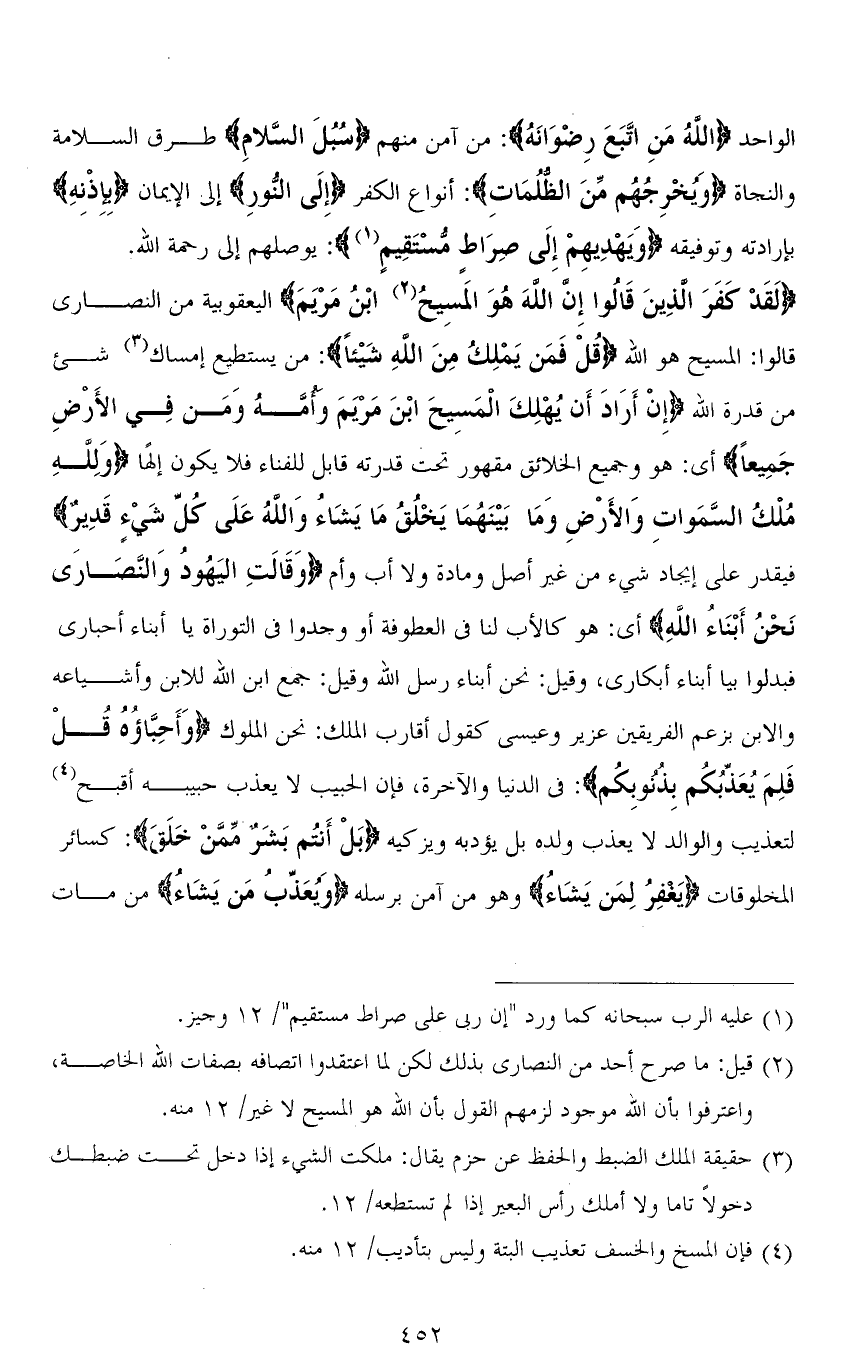 الواحد ﴿اللَّهُ مَنِ اتَّبَعَ رِضْوَانَهُ﴾: من آمن منهم ﴿سُبُلَ السَّلامِ﴾ طرق السلامة
والنجاة ﴿وَيُخْرِجُهُم مِّنَ الظُّلُمَاتِ﴾: أنواع الكفر ﴿إِلَى النُّورِ﴾ إلى الإيمان ﴿بِإِذْنِهِ﴾
بإرادته وتوفيقه ﴿وَيَهْدِيهِمْ إِلَى صِرَاطٍ مُّسْتَقِيمٍ(١)﴾: يوصلهم إلى رحمة الله.
﴿لَقَدْ كَفَرَ الَّذِينَ قَالُوا إِنَّ اللَّهَ هُوَ المَسِيحُ(٢) ابْنُ مَرْيَمَ﴾ اليعقوبية من النصارى
قالوا: المسيح هو الله ﴿قُلْ فَمَن يَمْلِكُ مِنَ اللَّهِ شَيْئاً﴾: من يستطيع إمساك(٣) شئ
من قدرة الله ﴿إِنْ أَرَادَ أَن يُهْلِكَ الْمَسِيحَ ابْنَ مَرْيَمَ وَأُمَّهُ وَمَن فِي الأَرْضِ
جَمِيعاً﴾ أى: هو وجميع الخلائق مقهور تحت قدرته قابل للفناء فلا يكون إلهًا ﴿وَلِلَّهِ
مُلْكُ السَّمَوَاتِ وَالأَرْضِ وَمَا بَيْنَهُمَا يَخْلُقُ مَا يَشَاءُ وَاللَّهُ عَلَى كُلِّ شَيْءٍ قَدِيرٌ﴾
فيقدر على إيجاد شيء من غير أصل ومادة ولا أب وأم ﴿وَقَالَتِ اليَهُودُ وَالنَّصَارَى
نَحْنُ أَبْنَاءُ اللَّهِ﴾ أى: هو كالأب لنا فى العطوفة أو وجدوا فى التوراة يا أبناء أحبارى
فبدلوا بيا أبناء أبكارى، وقيل: نحن أبناء رسل الله وقيل: جمع ابن الله للابن وأشياعه
والابن بزعم الفريقين عزير وعيسى كقول أقارب الملك: نحن الملوك ﴿وَأَحِبَّاؤُهُ قُلْ
فَلِمَ يُعَذِّبُكُم بِذُنُوبِكُم﴾: فى الدنيا والآخرة، فإن الحبيب لا يعذب حبيبه أقبح(٤)
لتعذيب والوالد لا يعذب ولده بل يؤدبه ويزكيه ﴿بَلْ أَنتُم بَشَرٌ مِّمَّنْ خَلَقَ﴾: كسائر
المخلوقات ﴿يَغْفِرُ لِمَن يَشَاءُ﴾ وهو من آمن برسله ﴿وَيُعَذِّبُ مَن يَشَاءُ﴾ من مات
(١) عليه الرب سبحانه كما ورد "إن ربى على صراط مستقيم"/ ١٢ وجيز.
(٢) قيل: ما صرح أحد من النصارى بذلك لكن لما اعتقدوا اتصافه بصفات الله الخاصة،
واعترفوا بأن الله موجود لزمهم القول بأن الله هو المسيح لا غير/ ١٢ منه.
(٣) حقيقة الملك الضبط والحفظ عن حزم يقال: ملكت الشيء إذا دخل تحت ضبطك
دخولاً تاما ولا أملك رأس البعير إذا لم تستطعه/ ١٢.
(٤) فإن المسخ والخسف تعذيب البتة وليس بتأديب/ ١٢ منه.
٤٥٢